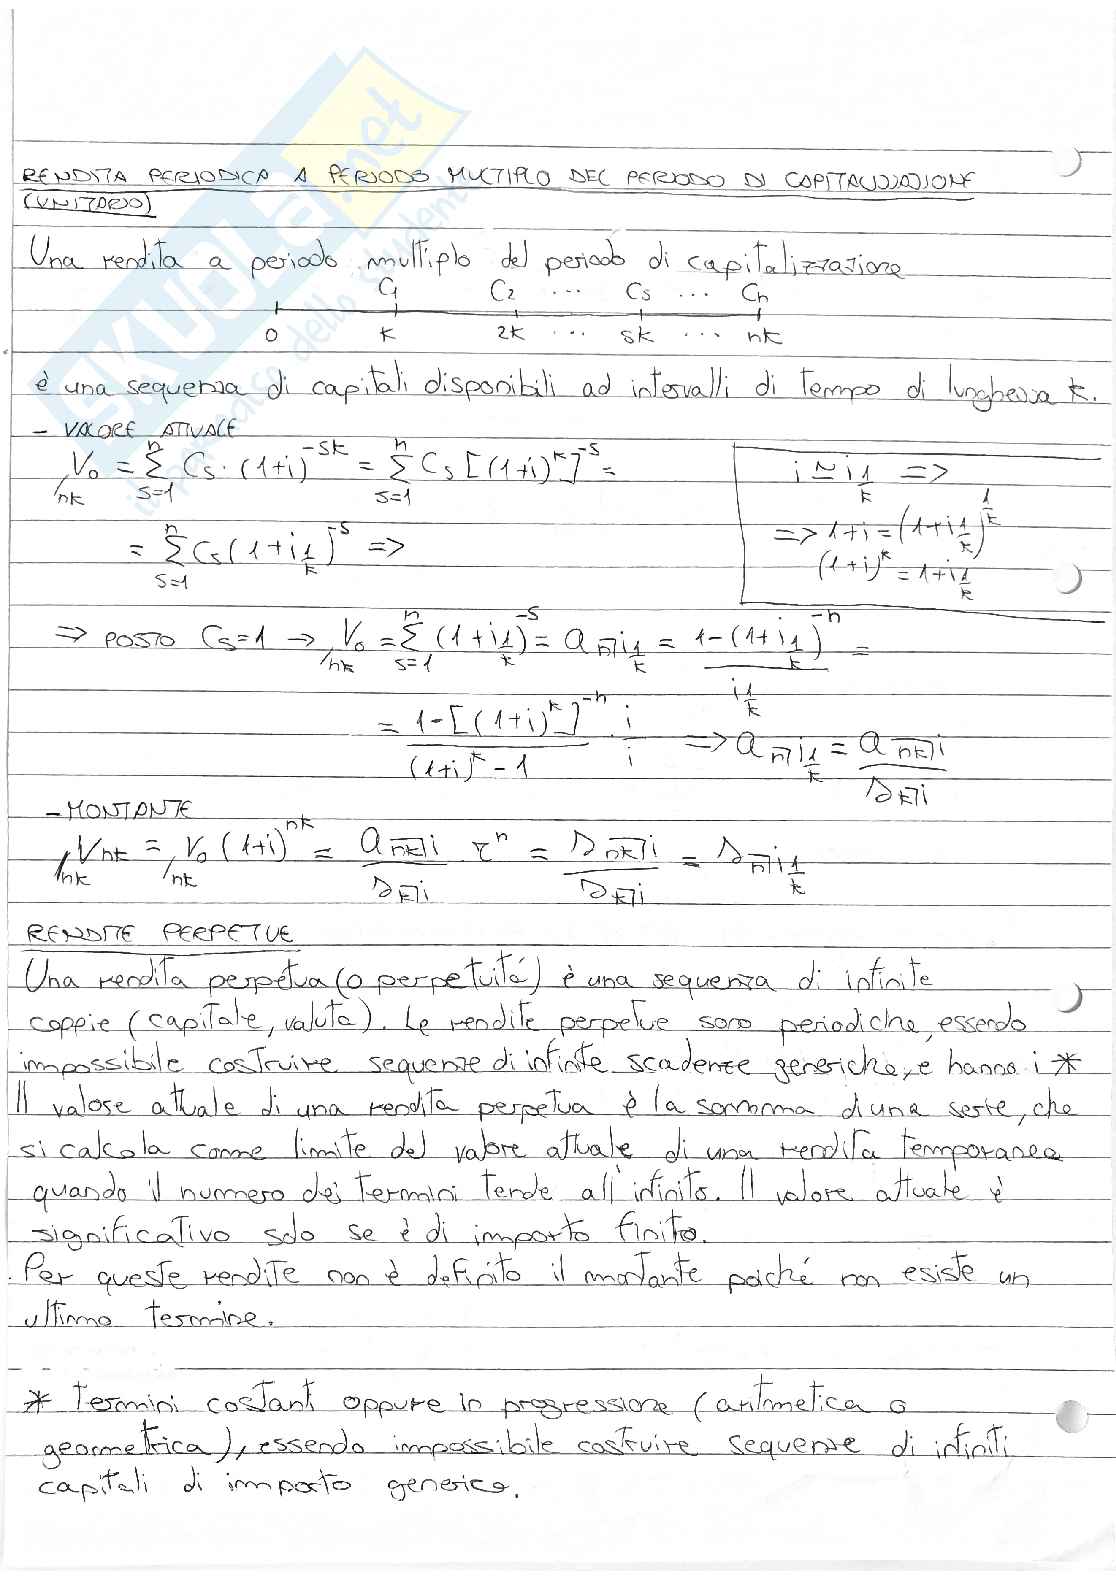 RENDITA PERIODICA A PERIODO MULTIPLO DEL PERIODO DI CAPITALIZZAZIONE
(UNITARIO)
Una rendita a periodo multiplo del periodo di capitalizzazione
C1 C2 ... Cs ... Cn
0 k 2k ... sk ... nk
è una sequenza di capitali disponibili ad intervalli di tempo di lunghezza k.
- VALORE ATTUALE
/nk V₀ = Σ_{s=1}^{n} Cs · (1+i)^{-sk} = Σ_{s=1}^{n} Cs [(1+i)^k]^{-s} =
i ≃ i_{1/k} =>
=> 1+i = (1+i_{1/k})^{1/k}
(1+i)^k = 1+i_{1/k}
= Σ_{s=1}^{n} Cs (1+i_{1/k})^{-s} =>
=> POSTO Cs=1 → /nk V₀ = Σ_{s=1}^{n} (1+i_{1/k})^{-s} = a_{n̅|i_{1/k}} = (1-(1+i_{1/k})^{-n}) / i_{1/k} =
= (1-[(1+i)^k]^{-n}) / ((1+i)^k - 1) · i/i => a_{n̅|i_{1/k}} = a_{n̅k̅|i} / s_{k̅|i}
- MONTANTE
/nk V_{nk} = /nk V₀ (1+i)^{nk} = a_{n̅k̅|i} / s_{k̅|i} · r^n = s_{n̅k̅|i} / s_{k̅|i} = s_{n̅|i_{1/k}}
RENDITE PERPETUE
Una rendita perpetua (o perpetuitá) è una sequenza di infinite
coppie (capitale, valuta). Le rendite perpetue sono periodiche, essendo
impossibile costruire sequenze di infinite scadenze generiche, e hanno i *
Il valore attuale di una rendita perpetua è la somma di una serie, che
si calcola come limite del valore attuale di una rendita temporanea
quando il numero dei termini tende all'infinito. Il valore attuale è
significativo solo se è di importo finito.
Per queste rendite non è definito il montante poiché non esiste un
ultimo termine.
* termini costanti oppure in progressione (aritmetica o
geometrica), essendo impossibile costruire sequenze di infiniti
capitali di importo generico.
SKUOLA.net